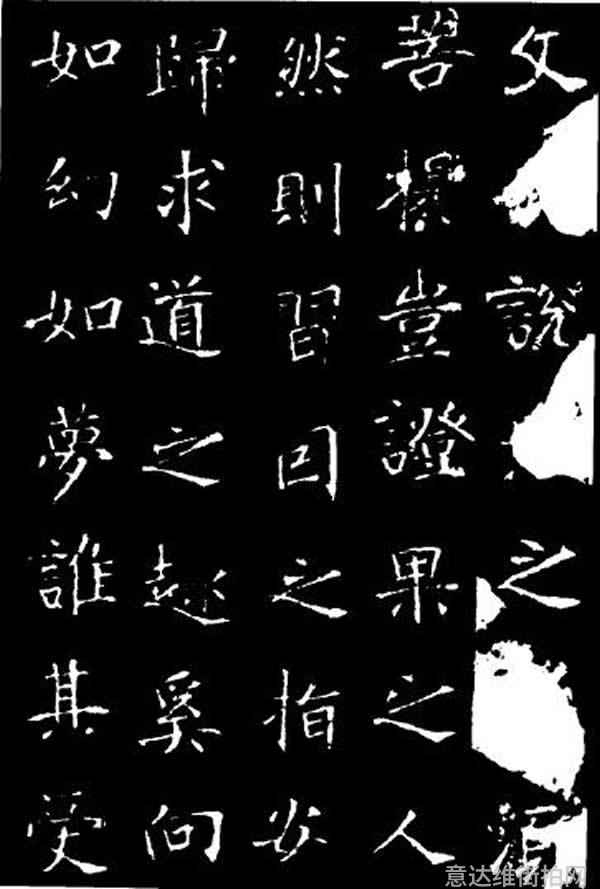 文說之須
菩提豈證果之人
然則習因之指安
歸求道之趣奚向
如幻如夢誰其受
意达维街拍网